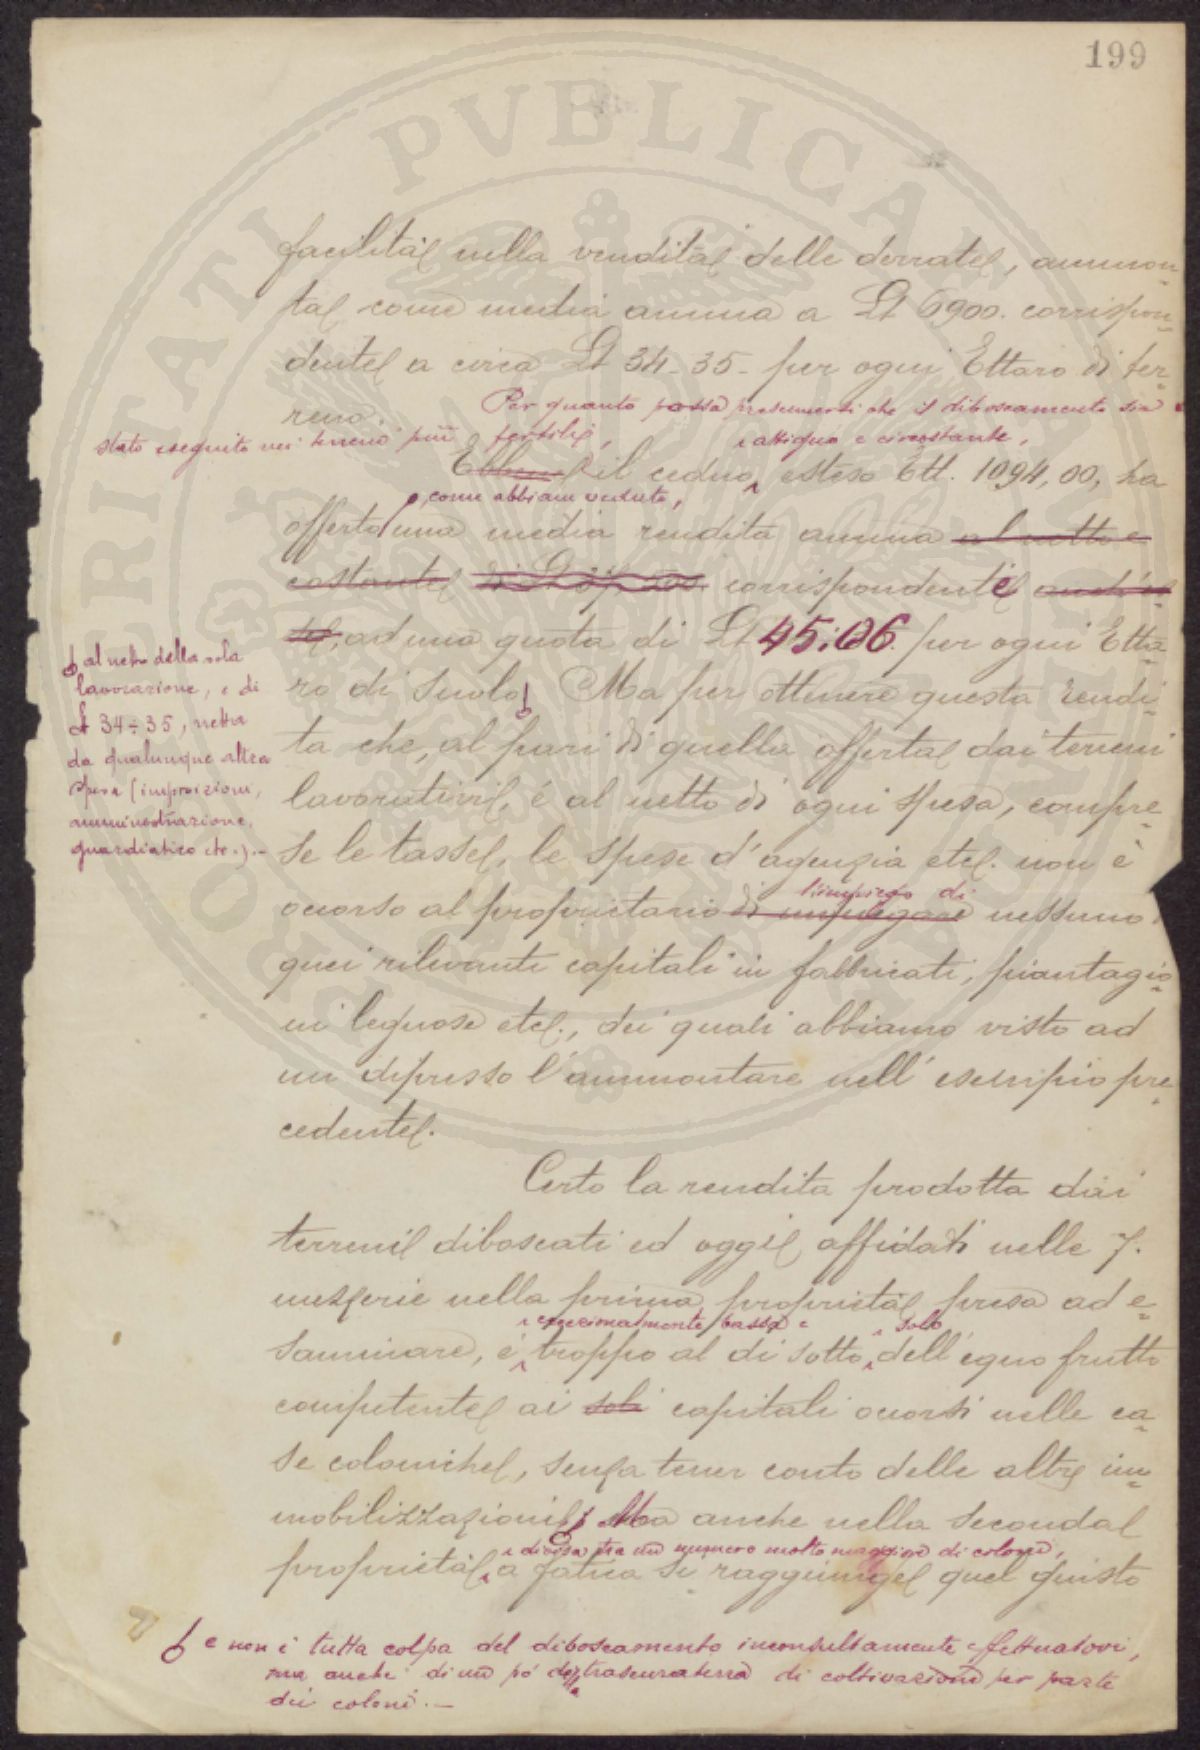 199
facilità nella vendita delle derrate, ammon-
ta come media annua a Lt 6900. corrispon-
dente a circa Lt 34-35- per ogni Ettaro di ter-
reno. Per quanto possa presumersi che il diboscamento sia
stato eseguito nei terreni più fertili,
attiguo e circostante,
Ebbene il ceduo, esteso Ett. 1094,00, ha
, come abbiam veduto,
offerto una media rendita annua al netto e
costante di Lt corrispondente
ad una quota di Lt 45:06. per ogni Etta-
ro di suolo. Ma per ottenere questa rendi-
al netto della sola
lavorazione, e di
Lt 34÷35, netta
da qualunque altra
spesa (imposizioni,
amministrazione,
guardiatico etc.).-
ta che, al pari di quella offerta dai terreni
lavorativi, è al netto di ogni spesa, compre-
se le tasse, le spese d'agenzia etc. non è
l'impiego di
occorso al proprietario di impiegare nessuno
quei rilevanti capitali in fabbricati, piantagio-
ni legnose etc., dei quali abbiamo visto ad
un dipresso l'ammontare nell'esempio pre-
cedente.
Certo la rendita prodotta dai
terreni diboscati ed oggi affidati nelle 7.
mezzerie nella prima proprietà presa ad e-
eccezionalmente bassa e solo
saminare, è troppo al di sotto dell'equo frutto
competente ai soli capitali occorsi nelle ca-
se coloniche, senza tener conto delle altre im-
mobilizzazioni; Ma anche nella seconda
divisa tra un numero molto maggiore di coloni,
proprietà, a fatica si raggiunge quel giusto
e non è tutta colpa del diboscamento inconsultamente effettuatovi,
ma anche di un pò di trascuratezza di coltivazione per parte
dei coloni.-